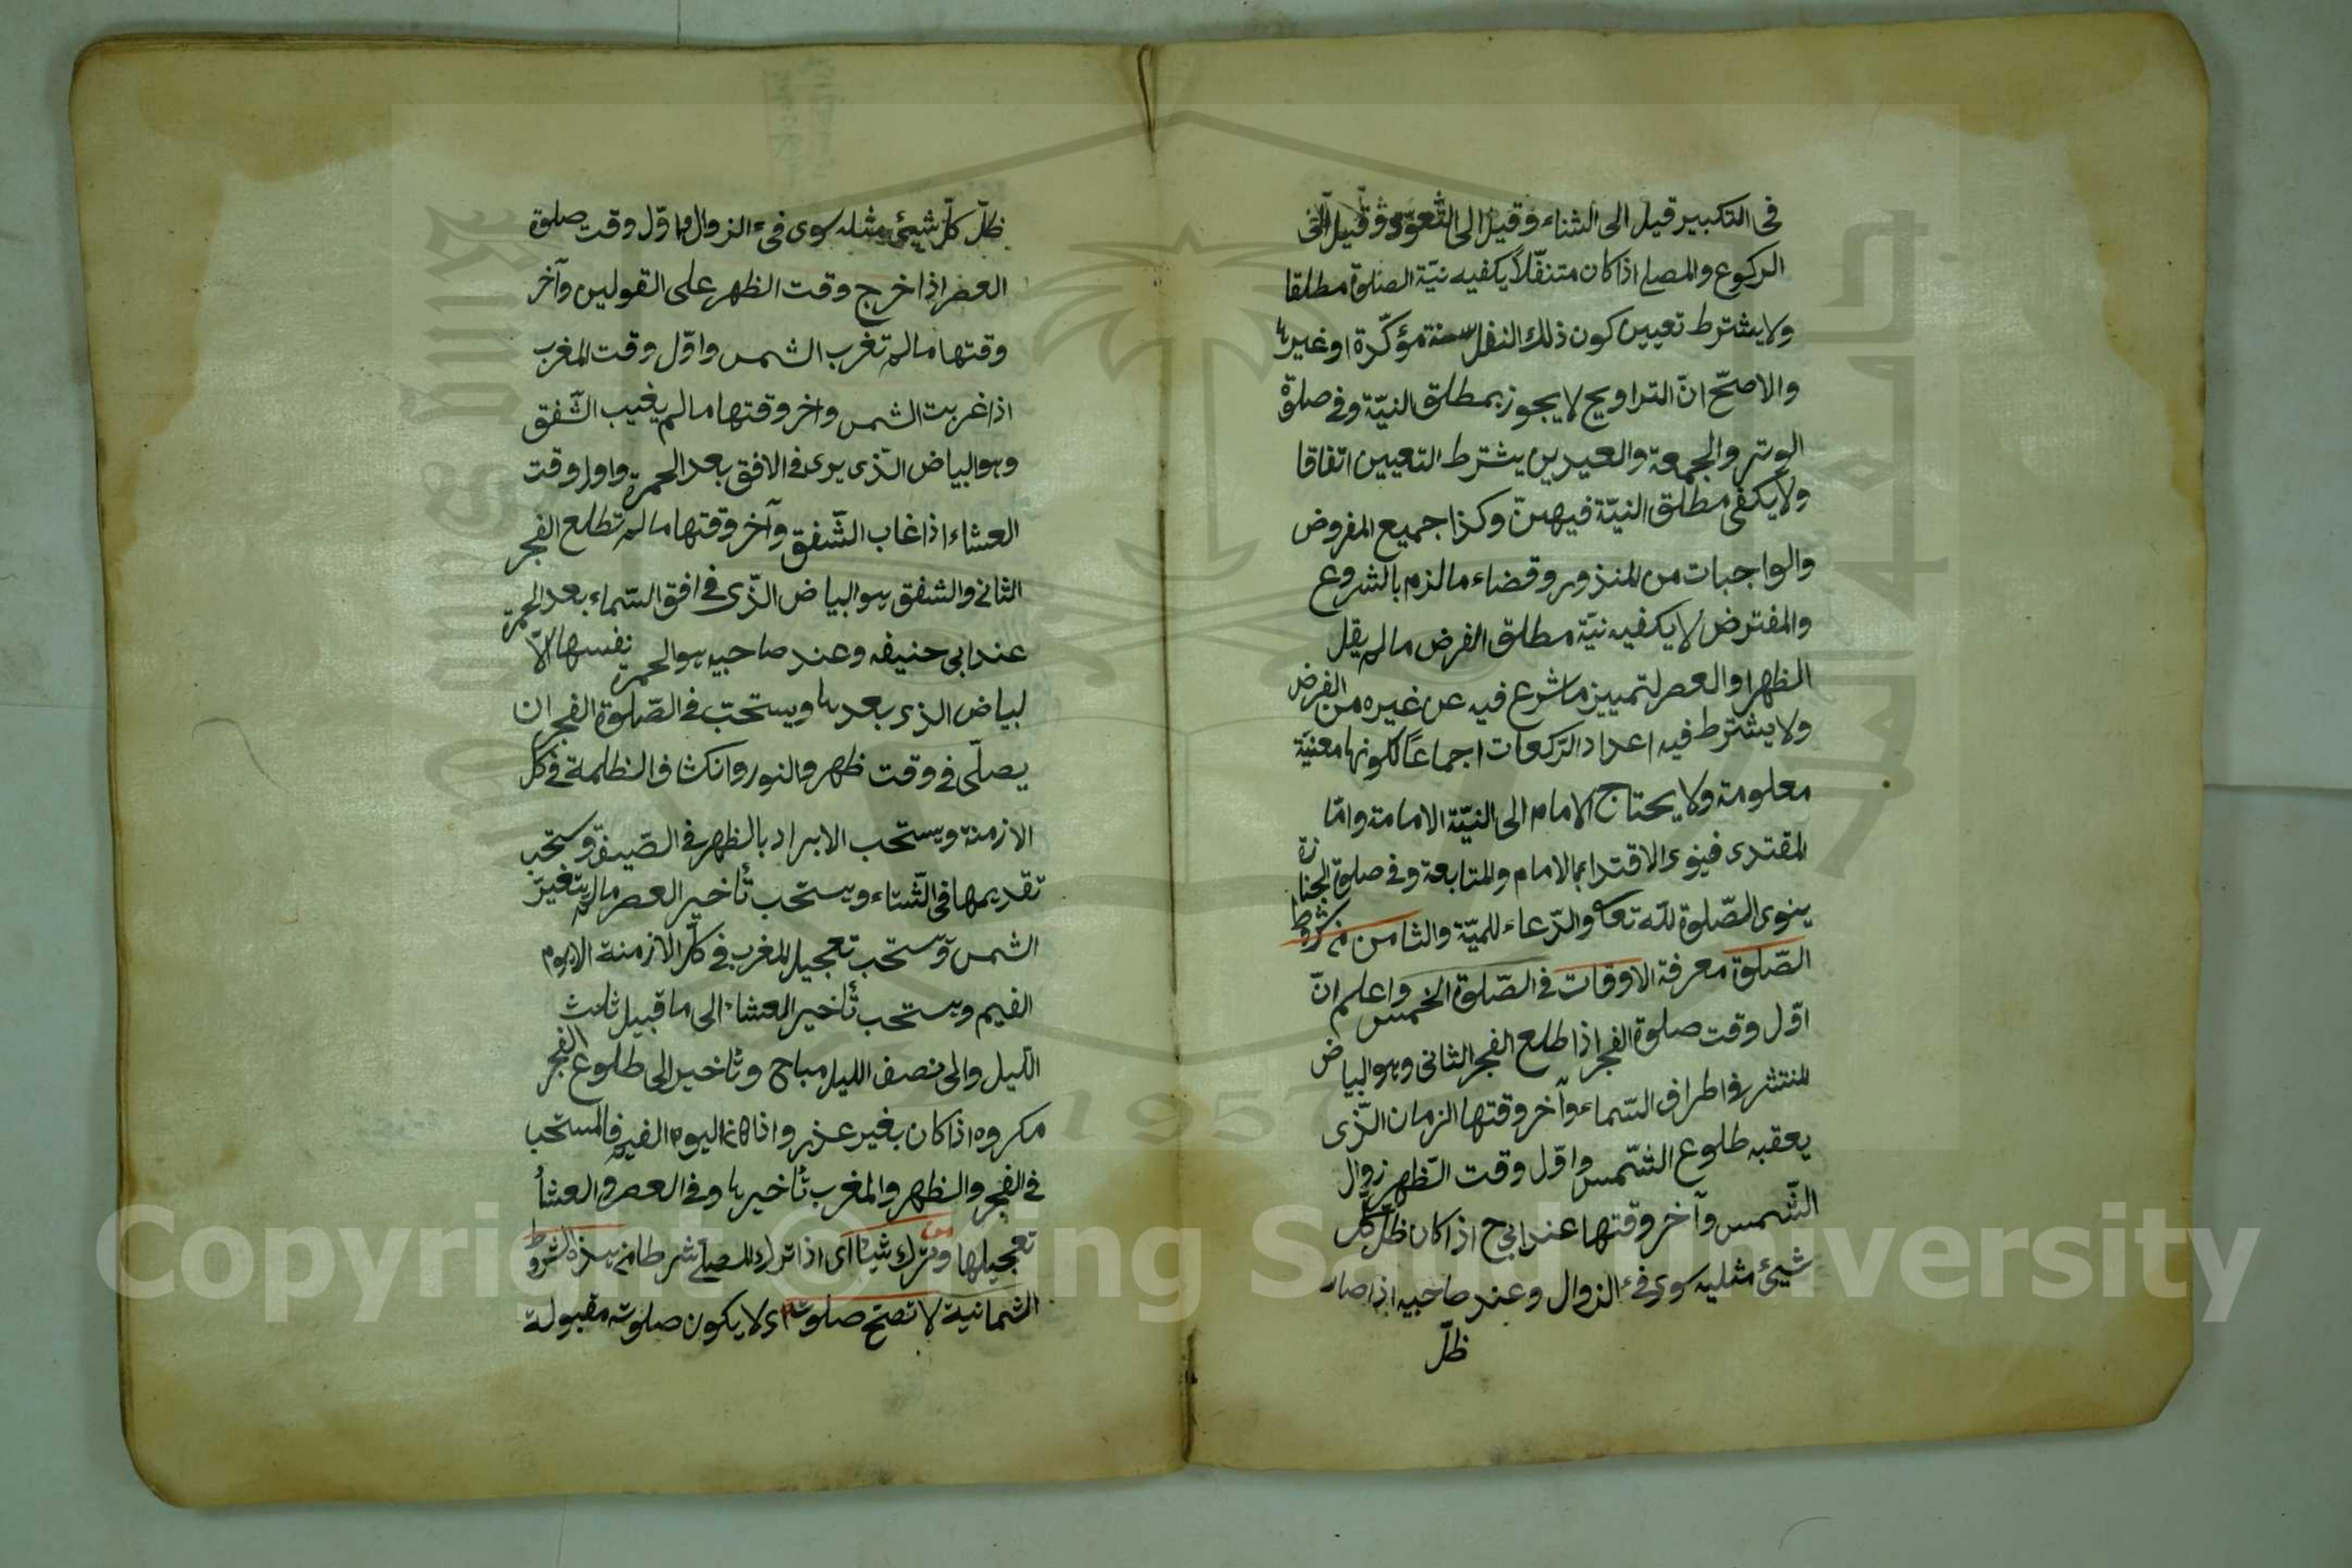 فى التكبير قيل الى الثناء وقيل الى التعوّذ وقيل الى
الركوع والمصلى اذا كان متنفّلا يكفيه نيّة الصلوة مطلقا
ولا يشترط تعيين كون ذلك النفل سنة مؤكّدة او غيرها
والاصحّ انّ التراويح لا يجوز بمطلق النيّة وفى صلوة
الوتر والجمعة والعيدين يشترط التعيين اتفاقا
ولا يكفى مطلق النيّة فيهنّ وكذا جميع المفروض
والواجبات من المنذور وقضاء ما لزم بالشروع
والمفترض لا يكفيه نيّة مطلق الفرض ما لم يقل
الظهر او العصر لتمييز ما شرع فيه عن غيره من الفرض
ولا يشترط فيه اعداد الركعات اجماعًا لكونها معنيّة
معلومة ولا يحتاج الامام الى النيّة الامامة وامّا
المقتدى فينوى الاقتداء بالامام والمتابعة وفى صلوة الجنازة
ينوى الصّلوة للّه تعا والدّعاء للميّة والثامن من شروط
الصّلوة معرفة الاوقات فى الصّلوة الخمس واعلم انّ
اوّل وقت صلوة الفجر اذا طلع الفجر الثانى وهو البياض
المنتشر فى اطراف السّماء وآخر وقتها الزمان الّذى
يعقبه طلوع الشّمس واوّل وقت الظهر زوال
الشّمس وآخر وقتها عند ابى ح اذا كان ظلّ كلّ
شيئ مثليه سوى فئ الزوال وعند صاحبيه اذا صار
ظلّ
ظلّ كلّ شيئ مثله سوى فىء الزوال واوّل وقت صلوة
العصر اذا خرج وقت الظهر على القولين وآخر
وقتها ما لم تغرب الشمس واوّل وقت المغرب
اذا غربت الشمس واخر وقتها ما لم يغيب الشّفق
وهو البياض الّذى يرى فى الافق بعد الحمرة واول وقت
العشاء اذا غاب الشّفق وآخر وقتها ما لم تطلع الفجر
الثانى والشفق هو البياض الّذى فى افق السّماء بعد الحمرة
عند ابى حنيفه وعند صاحبيه هو الحمرة نفسها لا
لبياض الذى بعدها ويستحبّ فى الصّلوة الفجر ان
يصلّى فى وقت ظهر والنور وانكشاف الظلمة فى كل
الازمنة ويستحب الابراد بالظهر فى الصّيف وستحب
تقديمها فى الشّتاء ويستحب تأخير العصر ما لم يتغيّر
الشمس وستحب تعجيل المغرب فى كلّ الازمنة الا يوم
الغيم ويستحب تأخير العشاء الى ما قبيل ثلث
الّيل والى نصف الليل مباح وتأخير الى طلوع الفجر
مكروه اذا كان بغير عذر واذا كان اليوم الغيم فالمستحب
فى الفجر والظهر والمغرب تأخيرها وفى العصر والعشأ
تعجيلها ومن ترك شيئا اى اذا ترك المصلى شرطا من هذه الشروط
الثمانية لا تصحّ صلوته اى لا يكون صلوته مقبولة
Copyright © King Saud University
1957